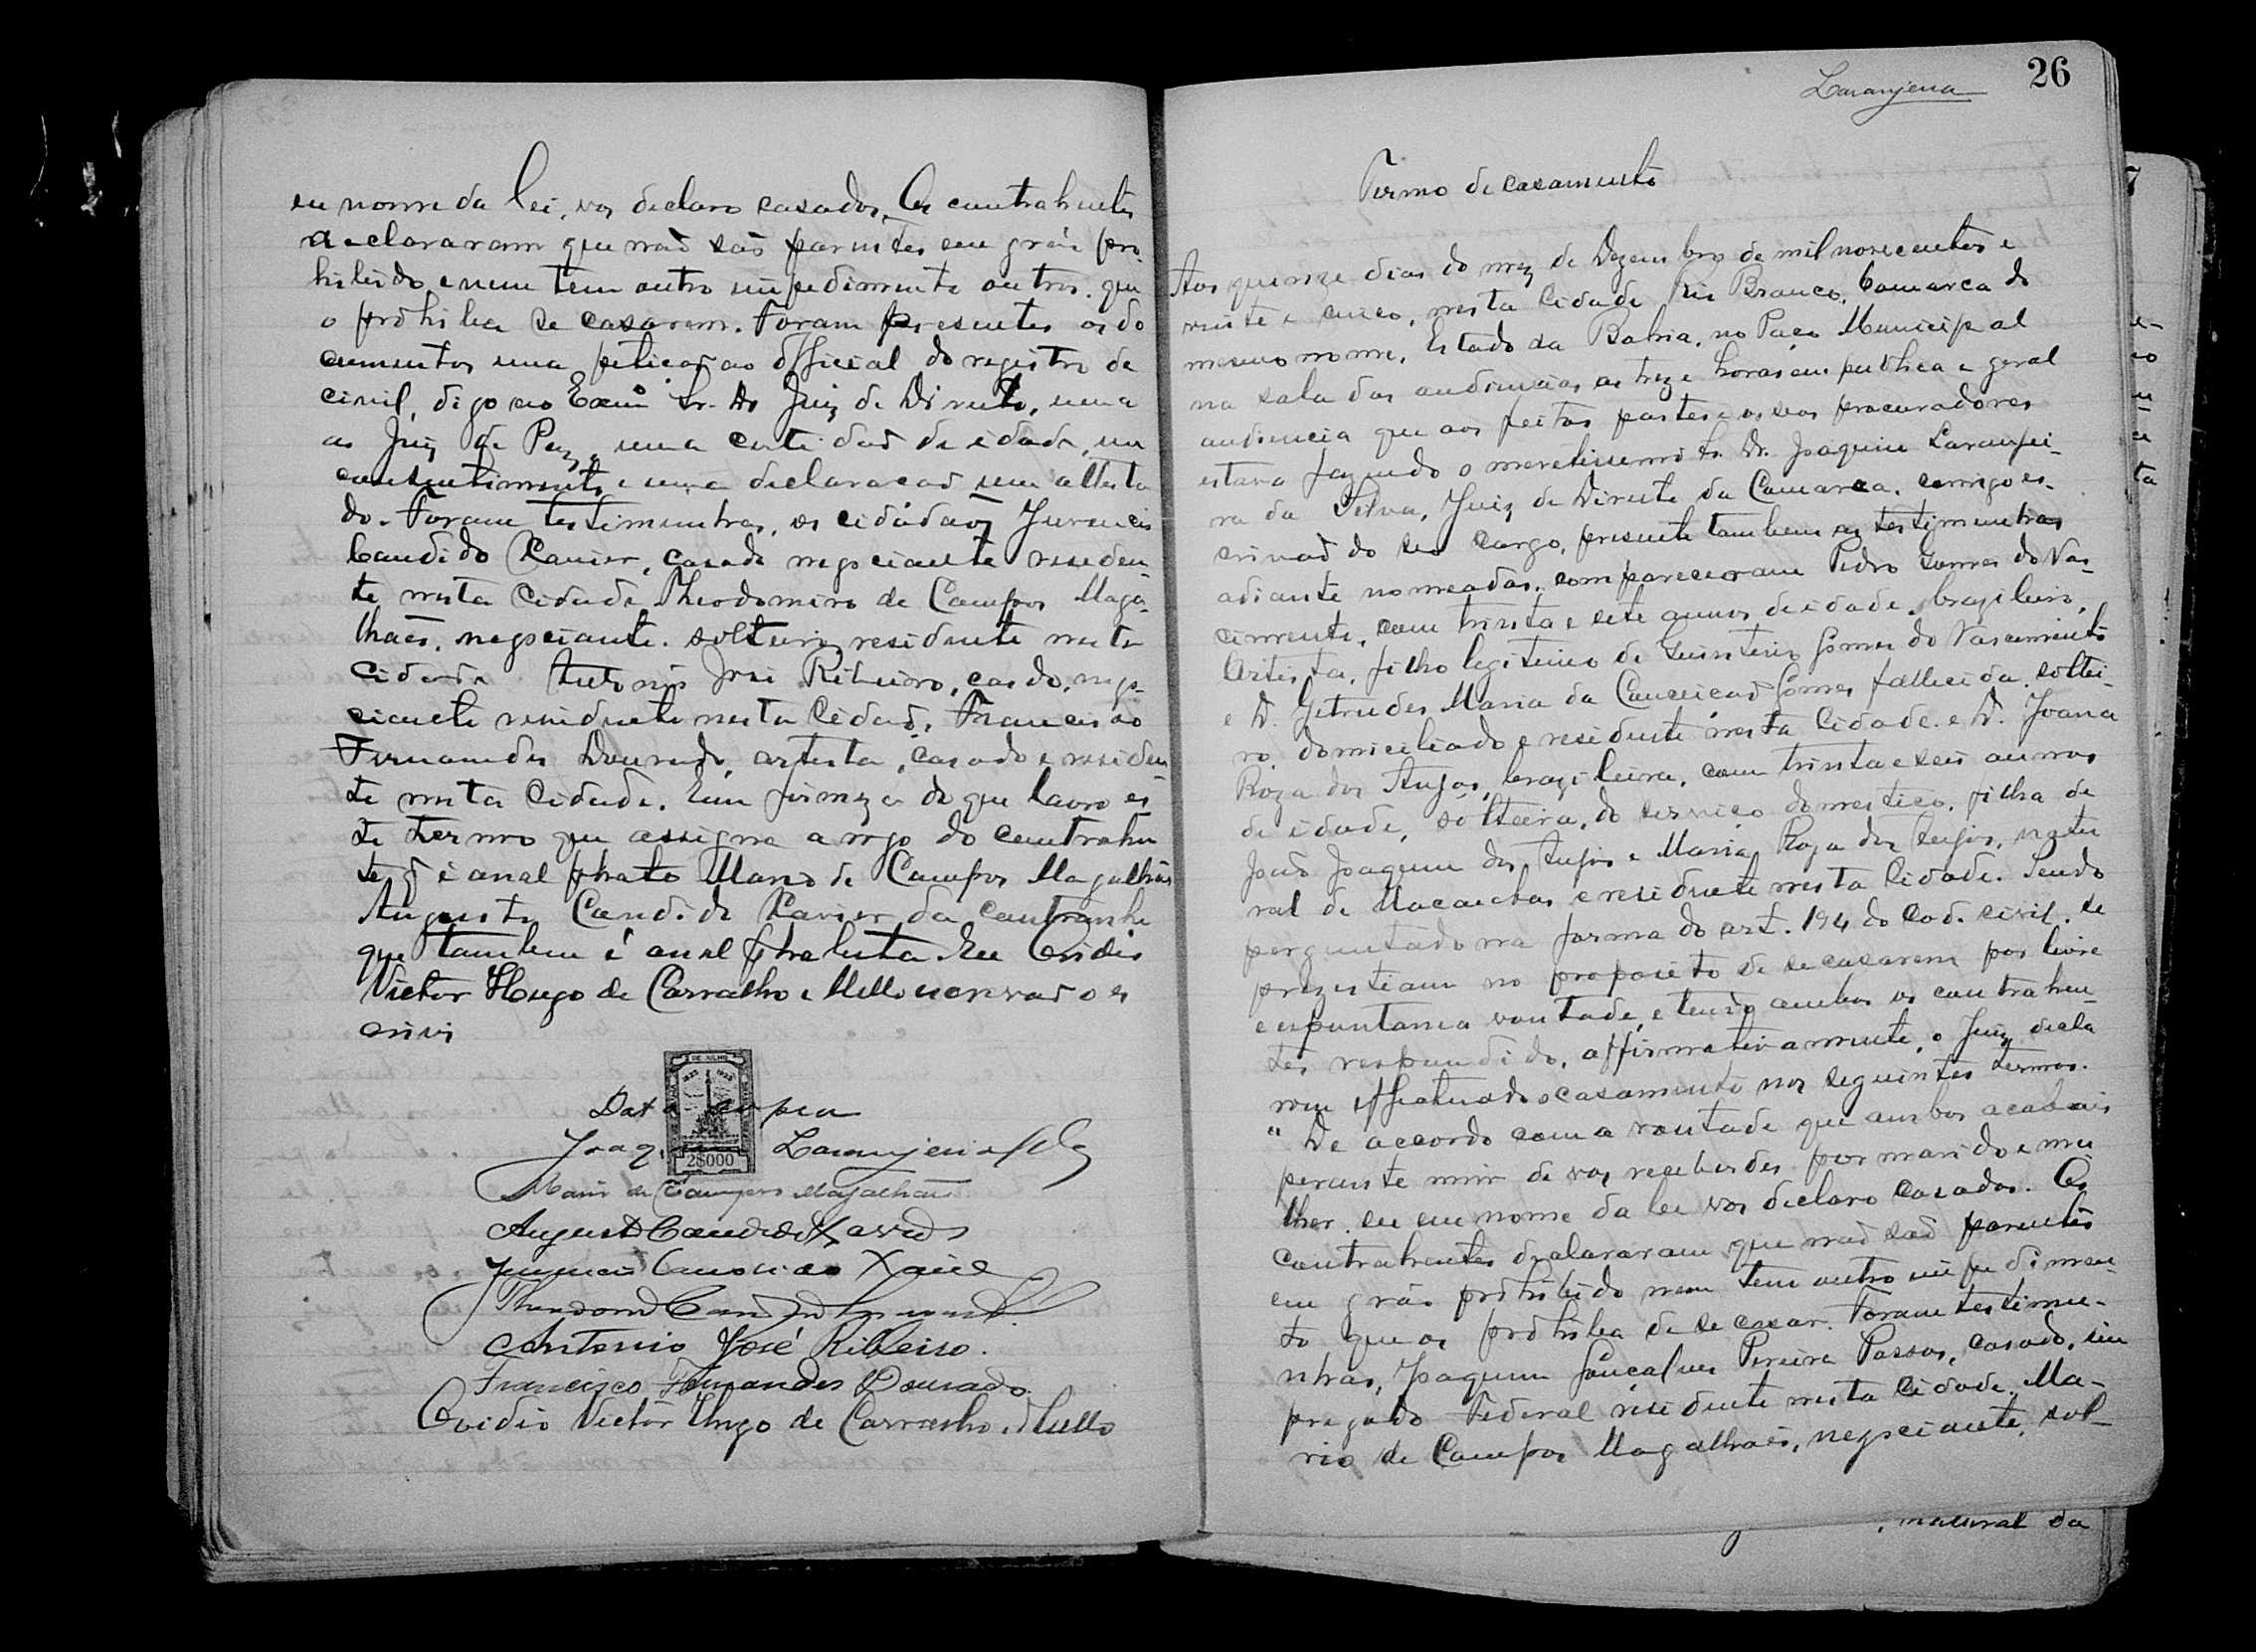 eu nome da lei, vos declaro casados. Os contrahentes
declararam que não são parentes em gráo pro-
hibido e nem tem outro impedimento outros que
o prohiba de casarem. Foram presentes os do
cumentos uma petição ao official do registro de
civil, digo ao Exmo Sr. Dr Juiz de Direito, uma
ao Juiz de Paz, uma certidão de idade, um
consentimento e uma declaracão um attesta
do. Foram testimunhas, os cidadãos Juvencio
Candido Xavier, casado negociante residen-
te nesta Cidade Theodomiro de Campos Maga-
lhães, negociante. solteiro, residente nesta
Cidade Antonio José Ribeiro, casdo, nego-
ciante residente nesta Cidade, Francisco
Fernandes Dourado, artista, casado e residen-
te nesta Cidade. Em firmeza do que lavro es
te termo que assigna a rogo do contrahen
te q é analphabeto Mario de Campos Magalhães
Augusto Candido Xavier da contranhe
que tambem é analphabeta. Eu Ovidio
Victor Hugo de Carvalho e Mello escrivão o es
crivi
DE JULHO
1823 1923
Data supra
2$000
Joaq. Laranjeira Silva
Mario de Campos Magalhães
Augusto Candido Xavier
Juvencio Candido Xavier
Antonio José Ribeiro.
Francisco Fernandes Dourado.
Ovidio Victor Hugo de Carvalho e Mello
Laranjeira
26
Termo de casamento
Aos quinze dias do mez de Dezembro de mil novecentos e
vinte e cinco, nesta Cidade Rio Branco, Comarca do
mesmo nome, Estado da Bahia, no Paço Municipal
na sala das audiencias, as treze horas em publica e geral
audiencia que aos feitos partes e os seos procuradores
estava fazendo o meretissimo Sr. Dr. Joaquim Laranjei-
ra da Silva, Juiz de Direito da Comarca, comigo es-
crivão do seo cargo, presente tambem as testimunhas
adiante nomeadas, compareceram Pedro Gomes do Nas-
cimento, com trinta e sete annos de idade, brazileiro,
Artista, filho legitimo de Quinterio Gomes do Nascimento
e D. Getrudes Maria da Conceicão Gomes fallecida, soltei-
ro, domiciliado e residente nesta Cidade. e D. Joana
Roza dos Anjos, brazileira, com trinta e seis annos
de idade, solteira, do serviço domestico, filha de
João Joaquim dos Anjos e Maria Roza dos Anjos, natu
ral de Macaubas e residente nesta Cidade. Sendo
perguntado na forma do art. 194 do Cod. civil, se
prezestiam no proposito de se casarem por livre
e espuntania vontade, e tendo ambos os contrahen-
tes respundido, affirmativamente, o Juiz decla
rou effectuado o casamento nos seguintes termos.
"De accordo com a vontade que ambos acabais
perante mim de vos receberdes por marido e mu
lher, eu em nome da lei vos declaro casados. Os
contrahentes declararam que não são parentes
em gráo prohibido nem tem outro impedimen-
to que os prohiba de se casar. Foram testimu-
nhas, Joaquim Gonçalves Pereira Passos, casado, im
pregado Federal residente nesta Cidade. Ma-
rio de Campos Magalhães, negociante, sol-
7
ta
, natural da